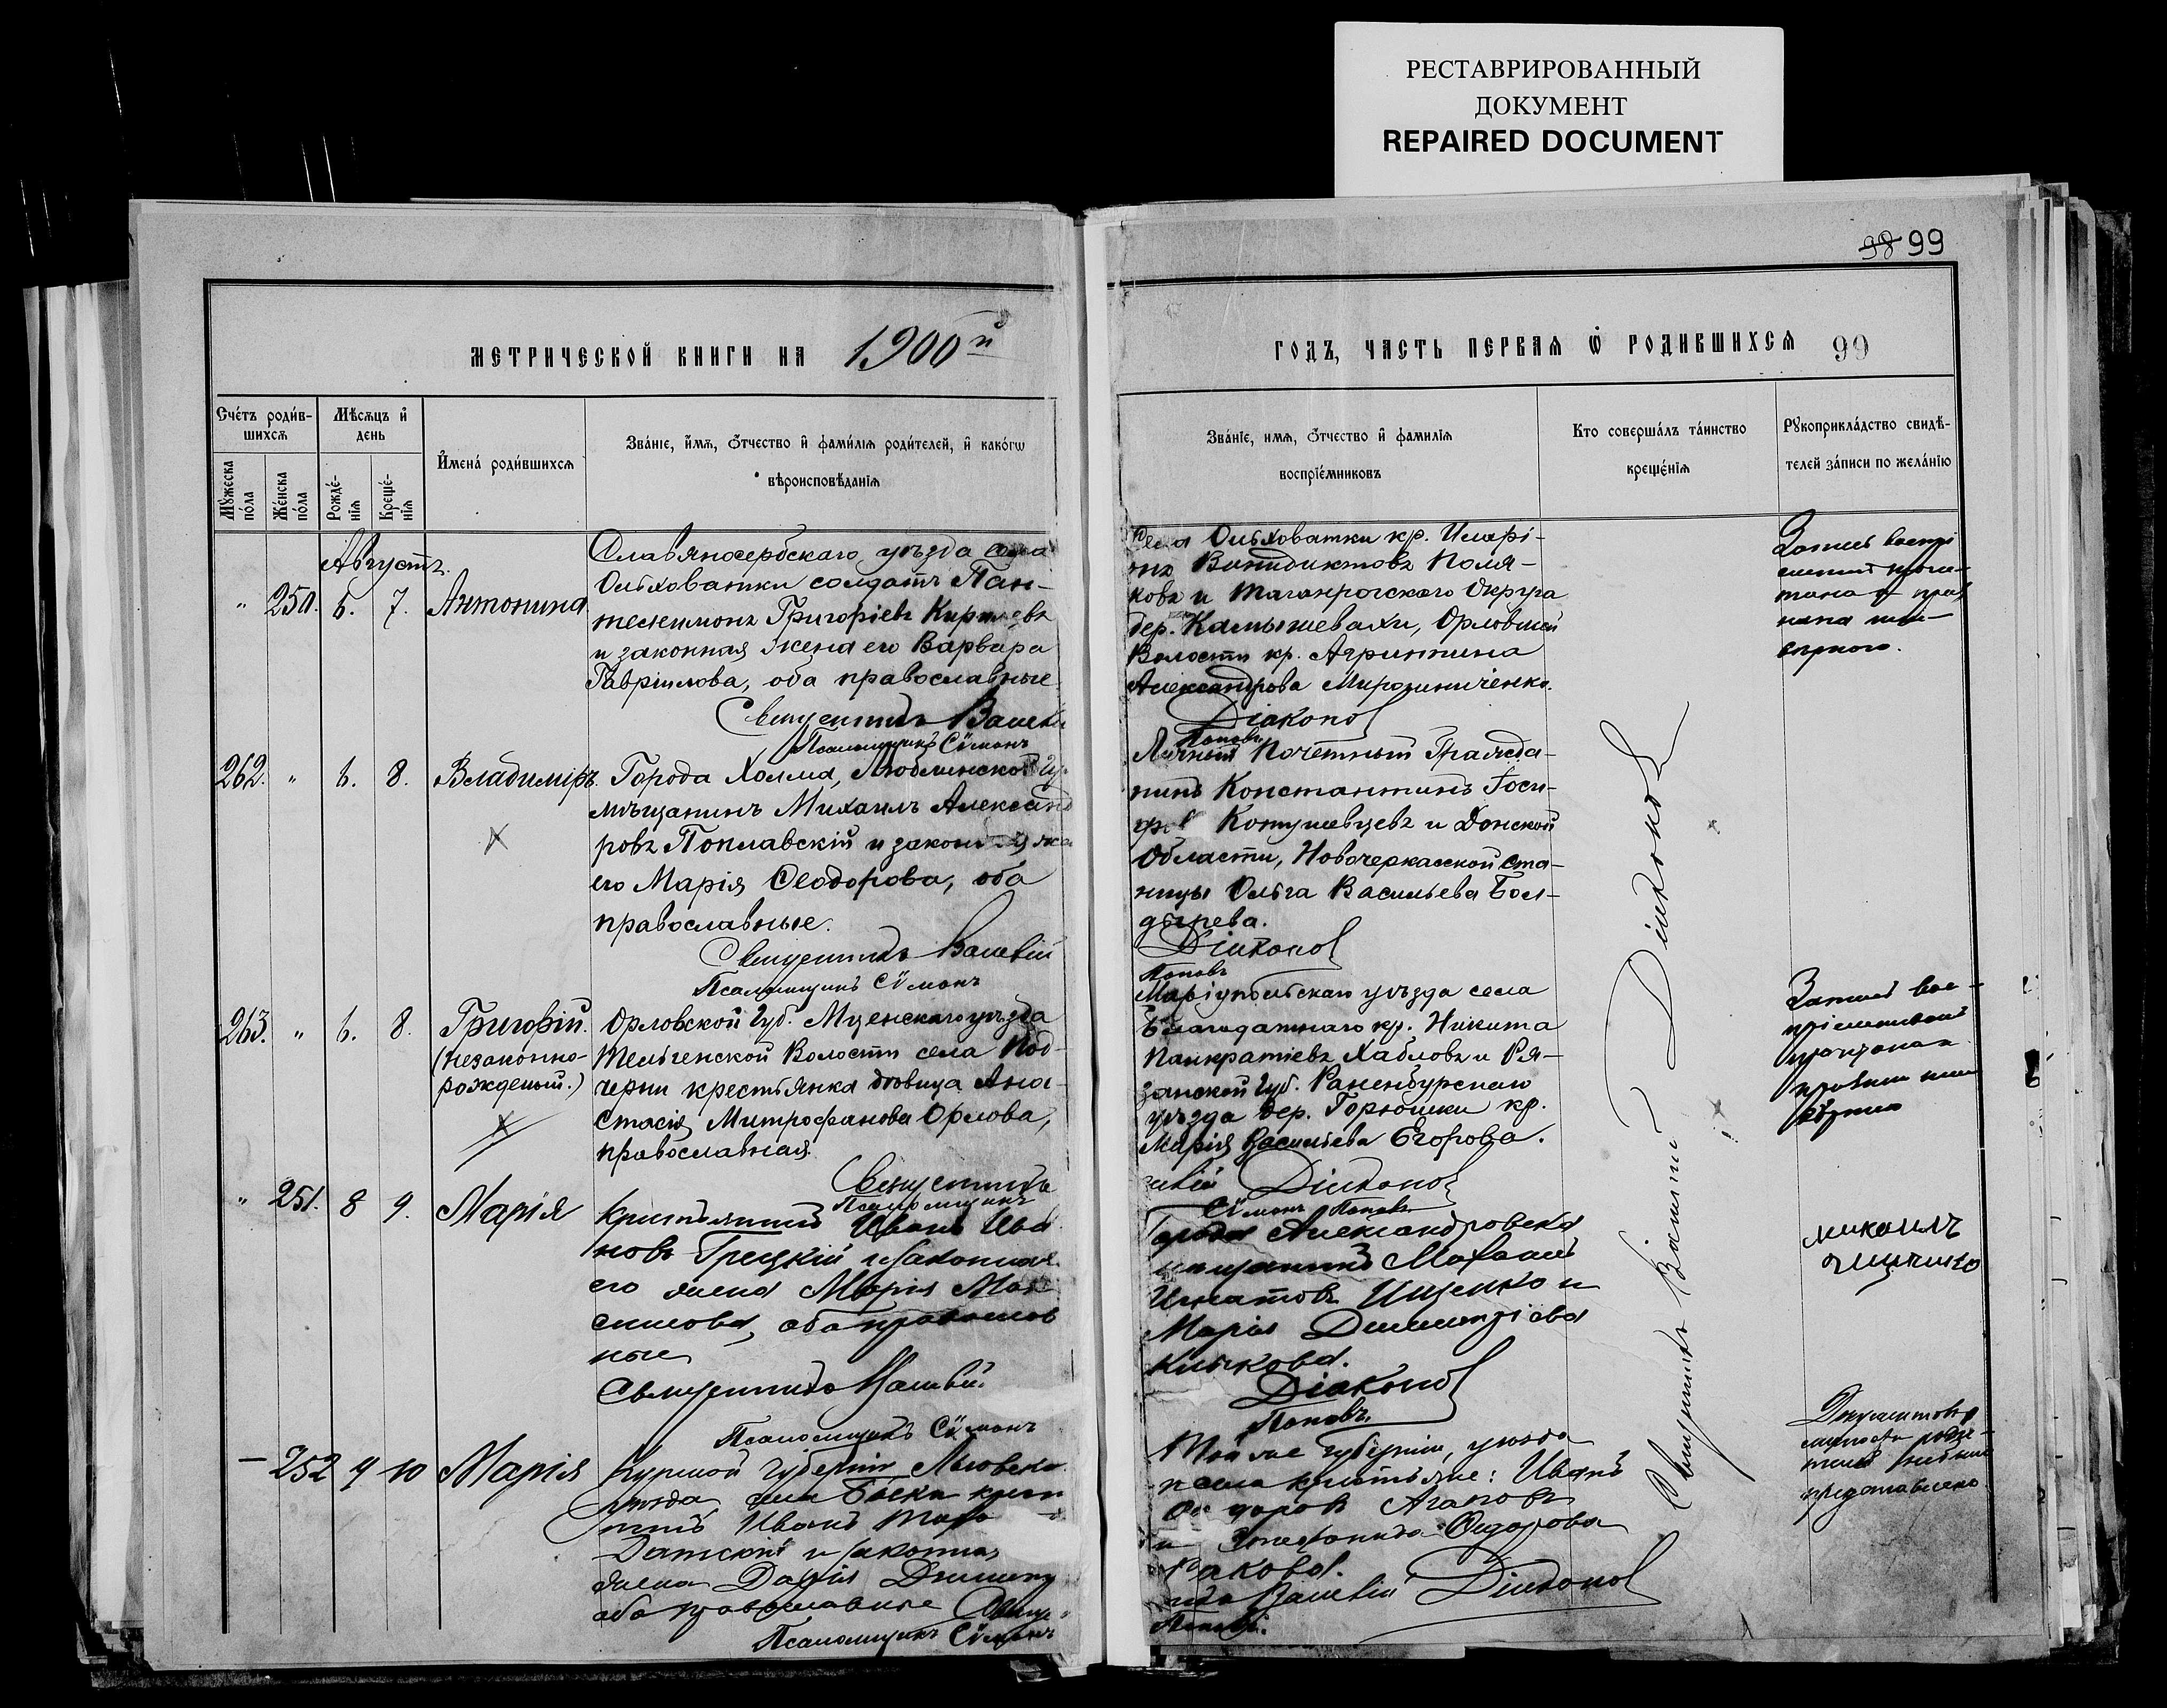 РЕСТАВРИРОВАННЫЙ
ДОКУМЕНТ
REPAIRED DOCUMENT
98 99
МЕТРИЧЕСКОЙ КНИГИ НА 1900й
ГОДЪ, ЧАСТЬ ПЕРВАЯ Ѿ РОДИВШИХСЯ 99
Сче́тъ роди́в-
шихсѧ
Мѣсѧцъ и҆
день
Мꙋжеска
по́ла
Же́нска
по́ла
Рожде́-
нїѧ
Креще́-
нїѧ
И҆мена́ роди́вшихсѧ
Зва́нїе, и҆́мѧ, ѻ҆́тчество и҆ фами́лїѧ роди́телей, и҆ како́гѡ
вѣроисповѣ́данїѧ
Зва́нїе, имѧ, ѻ҆́тчество и҆ фамилїѧ
воспрїе́мниковъ
Кто соверша́лъ та́инство
креще́нїѧ
Рꙋкоприкла́дство свидѣ́-
телей за́писи по жела́нїю
Августъ.
" 250. 5. 7. Антонина.
Славяносербскаго уѣзда села
Ольховатки солдатъ Пан-
телеимонъ Григоріевъ
и законная жена его Варвара
Гавріилова, оба православные.
Священникъ Василій
Псаломщикъ Сѵмонъ
Села Ольховатки кр. Иларі-
онъ Поля-
ковъ и Таганрогскаго Округа
дер. Камышевахи, Орловской
Волости кр. Агриппина
Александрова Мирошниченко.
Діаконовъ
Поповъ
262. " 6. 8. Владиміръ.
Города Холма, Люблинской Гу.
мѣщанинъ Михаилъ Александ
ровъ Поплавскій и законная же
его Марія Ѳеодорова, оба
православные.
Священникъ Василій
Псаломщикъ Сѵмонъ
Личный Почетный Гражда-
нинъ Константинъ
и Донской
Области, Новочеркасской Ста-
ницы Ольга Васильева Бол-
дырева.
Діаконовъ
Поповъ
263. " 6. 8. Григорій.
(незаконно-
рожденый.)
Орловской Губ. Мценскаго уѣзда
Тельченской Волости села Под-
черни крестьянка дѣвица Ана-
стасія Митрофанова Орлова,
православная.
Священникъ
Псаломщикъ
Маріупольскаго уѣзда села
Благодатнаго кр. Никита
Панкратіевъ Хабловъ и Ря-
занской Губ. Раненбургскаго
уѣзда дер. Горюшки кр.
Марія Васильева Егорова.
Діаконовъ
Сѵмонъ Поповъ
" 251. 8 9. Марія
Крестьянинъ Иванъ Ива
новъ Грецкій и законная
его жена Марія Мак
симова, оба православ
ные
Священникъ Василій
Псаломщикъ Сѵмонъ
Города Александровска
мѣщанинъ Михаилъ
Игнатовъ Ищенко и
Марія Димитріева
Кулькова.
Діаконовъ
Поповъ.
Михаилъ
Ищенко
— 252 9 10 Марія
Курской губерніи Льговска
уѣзда села
Иванъ
и законная
жена Дарія
оба православные Свяще
Псаломщикъ Сѵмонъ
Той же губерніи, уѣзда
и села крестьяне: Иванъ
Агаповъ
и Сидорова
Ракова.
Василій Діаконовъ
Поповъ.
Священникъ Василій Діаконовъ